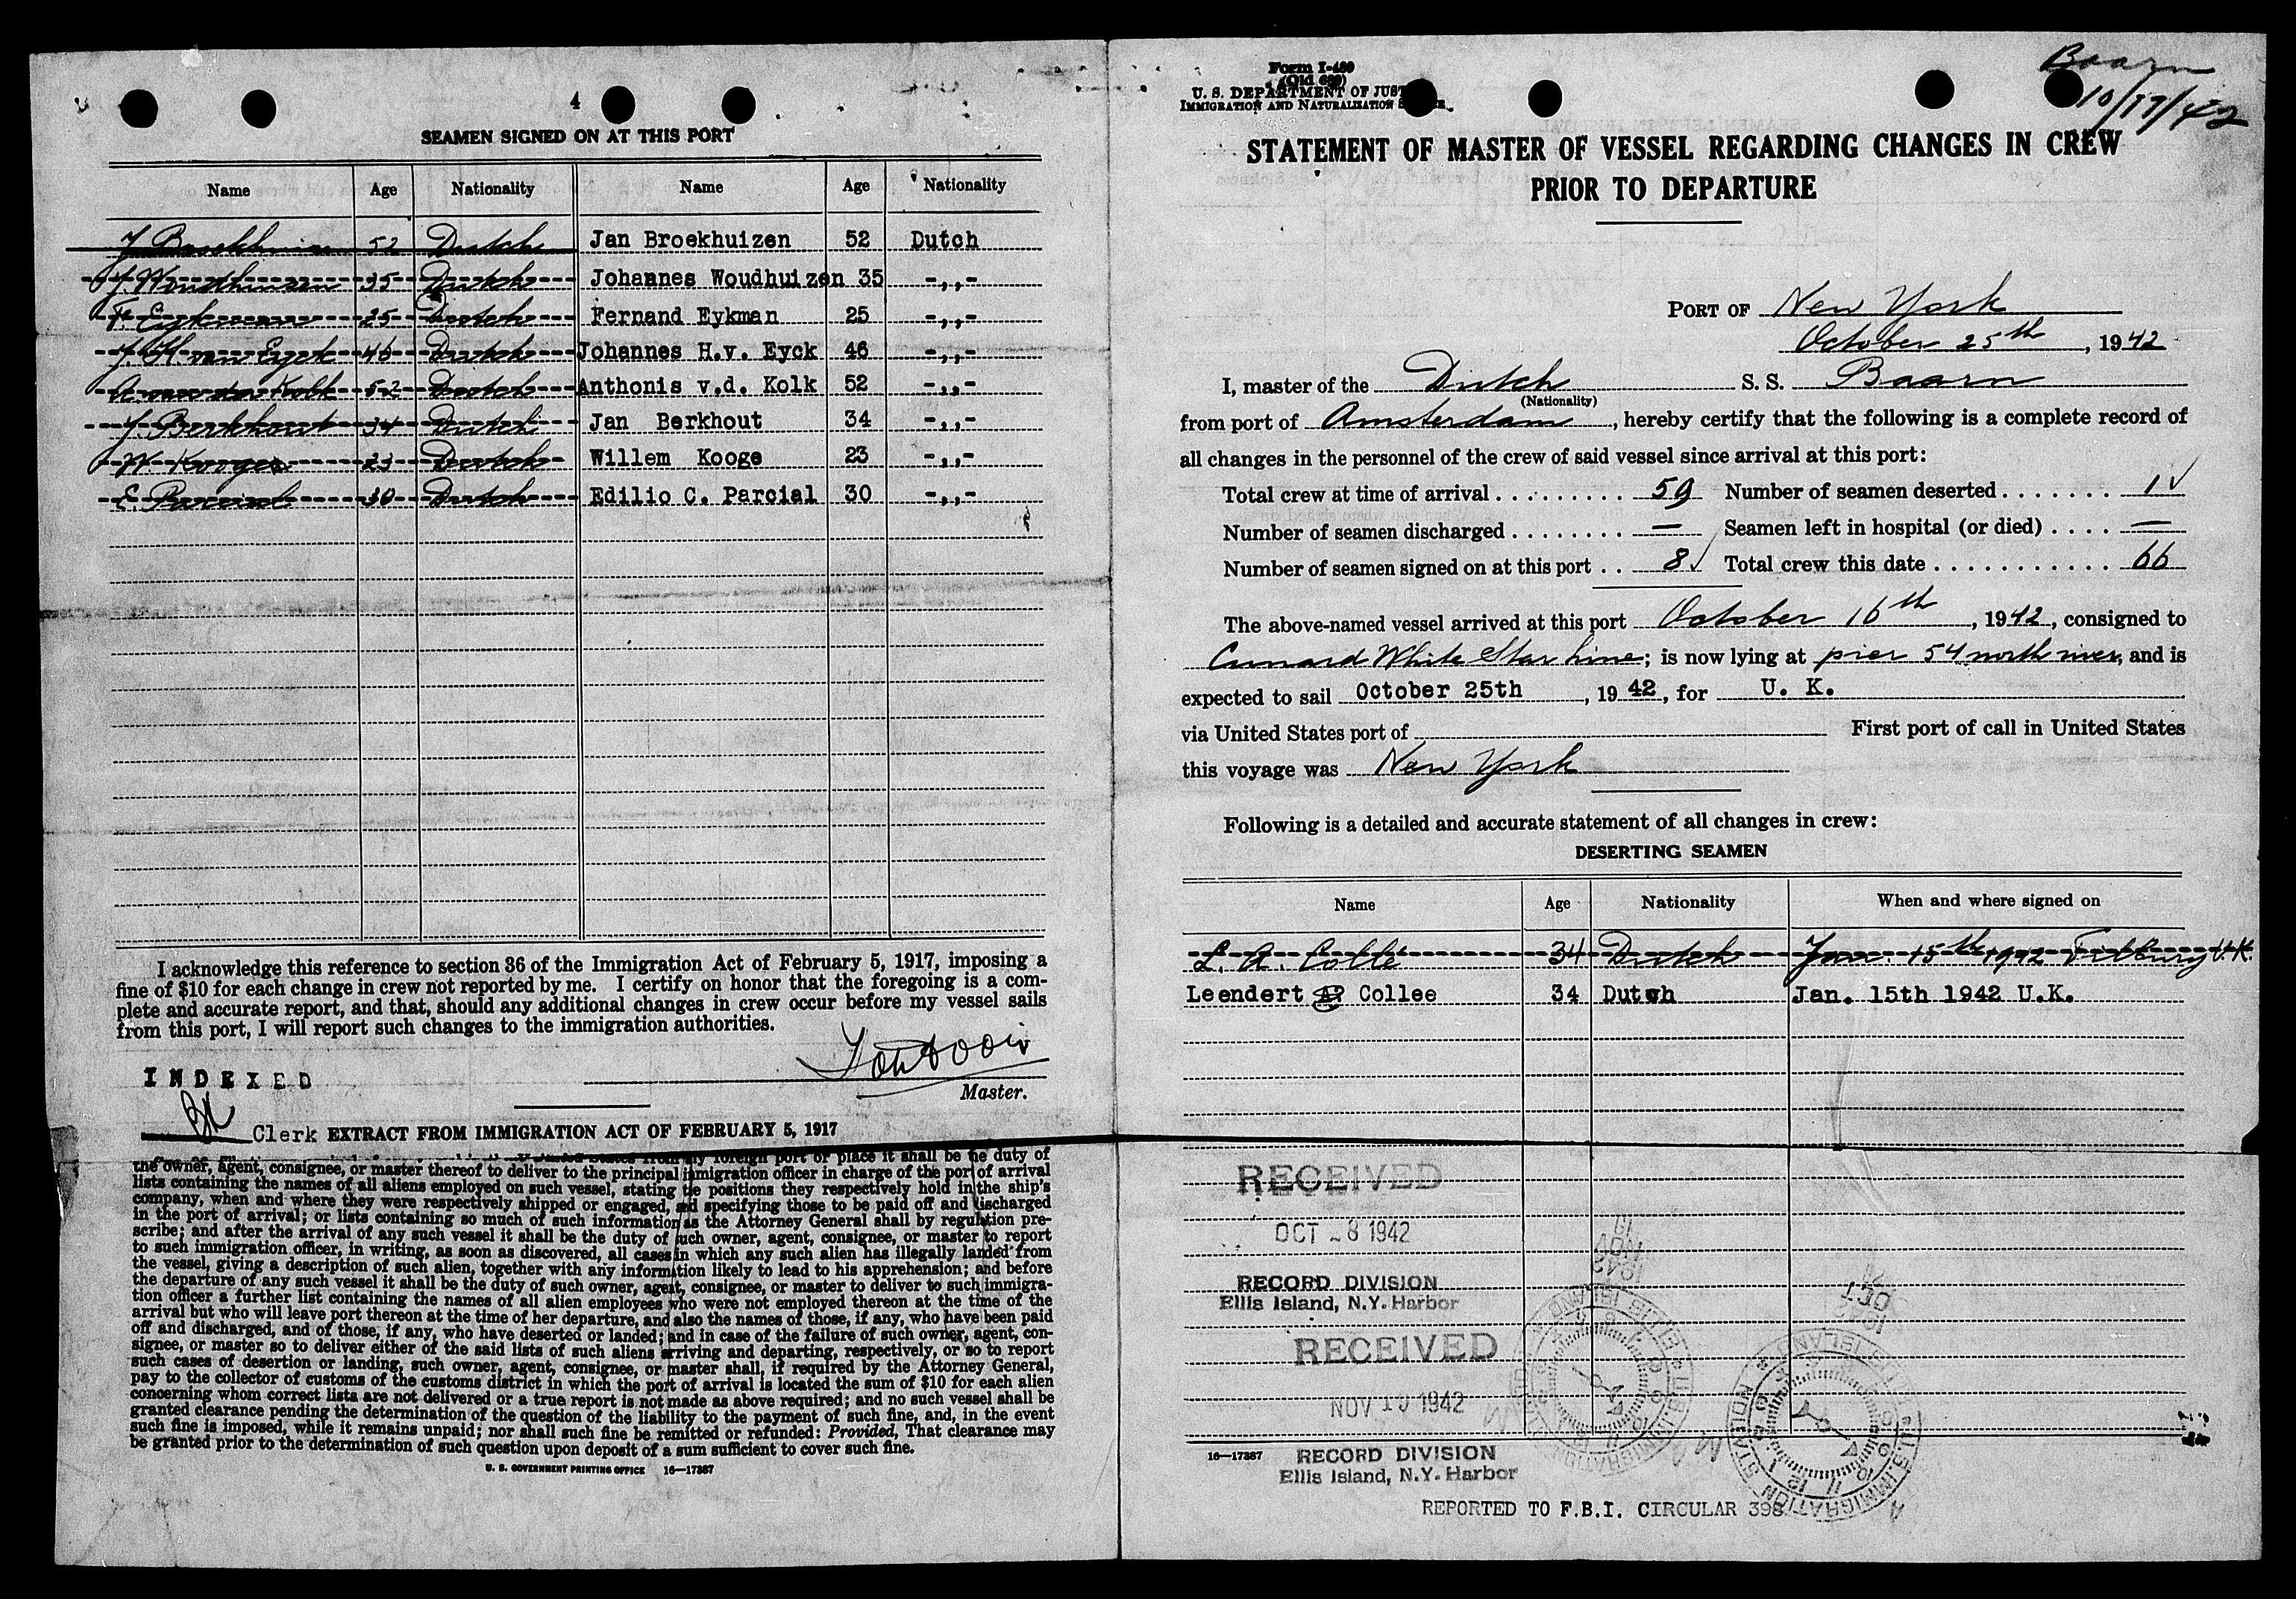 4
SEAMEN SIGNED ON AT THIS PORT
Name Age Nationality Name Age Nationality
52 Dutch Jan Broekhuizen 52 Dutch
J. Woudhuizen 35 Dutch Johannes Woudhuizen 35 -,,-
F. Eykman 25 Dutch Fernand Eykman 25 -,,-
J. H. van Eyck 46 Dutch Johannes H.v. Eyck 46 -,,-
A. van der Kolk 52 Dutch Anthonis v.d. Kolk 52 -,,-
J. Berkhout 34 Dutch Jan Berkhout 34 -,,-
W. 23 Dutch Willem Kooge 23 -,,-
E. Parcial 30 Dutch Edilio C. Parcial 30 -,,-
I acknowledge this reference to section 36 of the Immigration Act of February 5, 1917, imposing a
fine of $10 for each change in crew not reported by me. I certify on honor that the foregoing is a com-
plete and accurate report, and that, should any additional changes in crew occur before my vessel sails
from this port, I will report such changes to the immigration authorities.
Master.
INDEXED
Clerk EXTRACT FROM IMMIGRATION ACT OF FEBRUARY 5, 1917
foreign port or place it shall be the duty of
the owner, agent, consignee, or master thereof to deliver to the principal immigration officer in charge of the port of arrival
lists containing the names of all aliens employed on such vessel, stating the positions they respectively hold in the ship's
company, when and where they were respectively shipped or engaged, and specifying those to be paid off and discharged
in the port of arrival; or lists containing so much of such information as the Attorney General shall by regulation pre-
scribe; and after the arrival of any such vessel it shall be the duty of such owner, agent, consignee, or master to report
to such immigration officer, in writing, as soon as discovered, all cases in which any such alien has illegally landed from
the vessel, giving a description of such alien, together with any information likely to lead to his apprehension; and before
the departure of any such vessel it shall be the duty of such owner, agent, consignee, or master to deliver to such immigra-
tion officer a further list containing the names of all alien employees who were not employed thereon at the time of the
arrival but who will leave port thereon at the time of her departure, and also the names of those, if any, who have been paid
off and discharged, and of those, if any, who have deserted or landed; and in case of the failure of such owner, agent, con-
signee, or master so to deliver either of the said lists of such aliens arriving and departing, respectively, or so to report
such cases of desertion or landing, such owner, agent, consignee, or master shall, if required by the Attorney General,
pay to the collector of customs of the customs district in which the port of arrival is located the sum of $10 for each alien
concerning whom correct lists are not delivered or a true report is not made as above required; and no such vessel shall be
granted clearance pending the determination of the question of the liability to the payment of such fine, and, in the event
such fine is imposed, while it remains unpaid; nor shall such fine be remitted or refunded: Provided, That clearance may
be granted prior to the determination of such question upon deposit of a sum sufficient to cover such fine.
U. S. GOVERNMENT PRINTING OFFICE 16—17387
Baarn
10/17/42
Form I-489
(Old 689)
U. S. DEPARTMENT OF JUST
IMMIGRATION AND NATURALIZATION
STATEMENT OF MASTER OF VESSEL REGARDING CHANGES IN CREW
PRIOR TO DEPARTURE
PORT OF New York
October 25th, 1942
I, master of the Dutch S. S. Baarn
(Nationality)
from port of Amsterdam, hereby certify that the following is a complete record of
all changes in the personnel of the crew of said vessel since arrival at this port:
Total crew at time of arrival 59 Number of seamen deserted 1 ✓
Number of seamen discharged — Seamen left in hospital (or died) —
Number of seamen signed on at this port 8 ✓ Total crew this date 66
The above-named vessel arrived at this port October 16th, 1942, consigned to
Cunard White Star Line; is now lying at pier 54 north river, and is
expected to sail October 25th, 1942, for U. K.
via United States port of First port of call in United States
this voyage was New York
Following is a detailed and accurate statement of all changes in crew:
DESERTING SEAMEN
Name Age Nationality When and where signed on
L. A. Collé 34 Dutch Jan 15th 1942 Tilbury U.K.
Leendert Collee 34 Dutch Jan. 15th 1942 U.K.
RECEIVED
OCT 8 1942
RECORD DIVISION
Ellis Island, N.Y. Harbor
RECEIVED
NOV 10 1942
RECORD DIVISION
Ellis Island, N.Y. Harbor
16—17387
REPORTED TO F.B.I. CIRCULAR 398